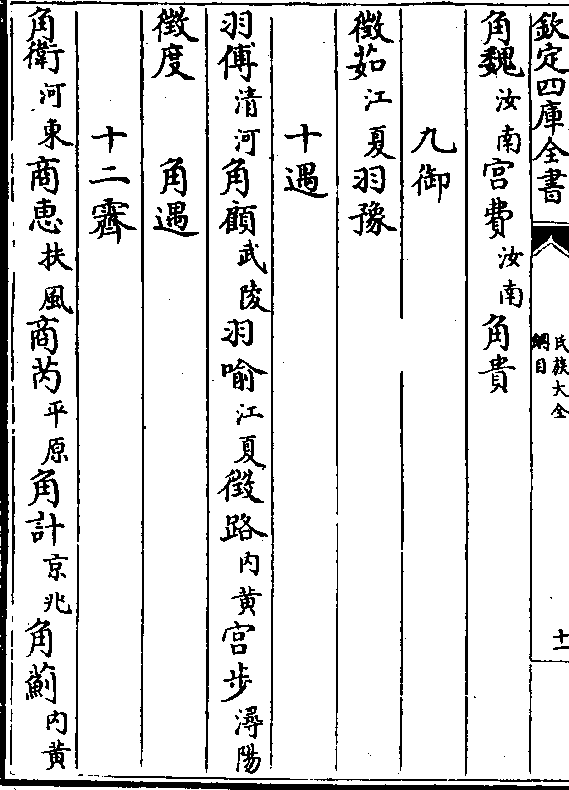 欽定四庫全書
氏族大全
綱目
十一
角魏汝南宮費汝南角貴
九御
徵茹江夏羽豫
十遇
羽傅清河角顧武陵羽喻江夏徵路內黃宮步潯陽
徵度角遇
十二霽
角衛河東商惠扶風商芮平原角計京兆角薊內黃